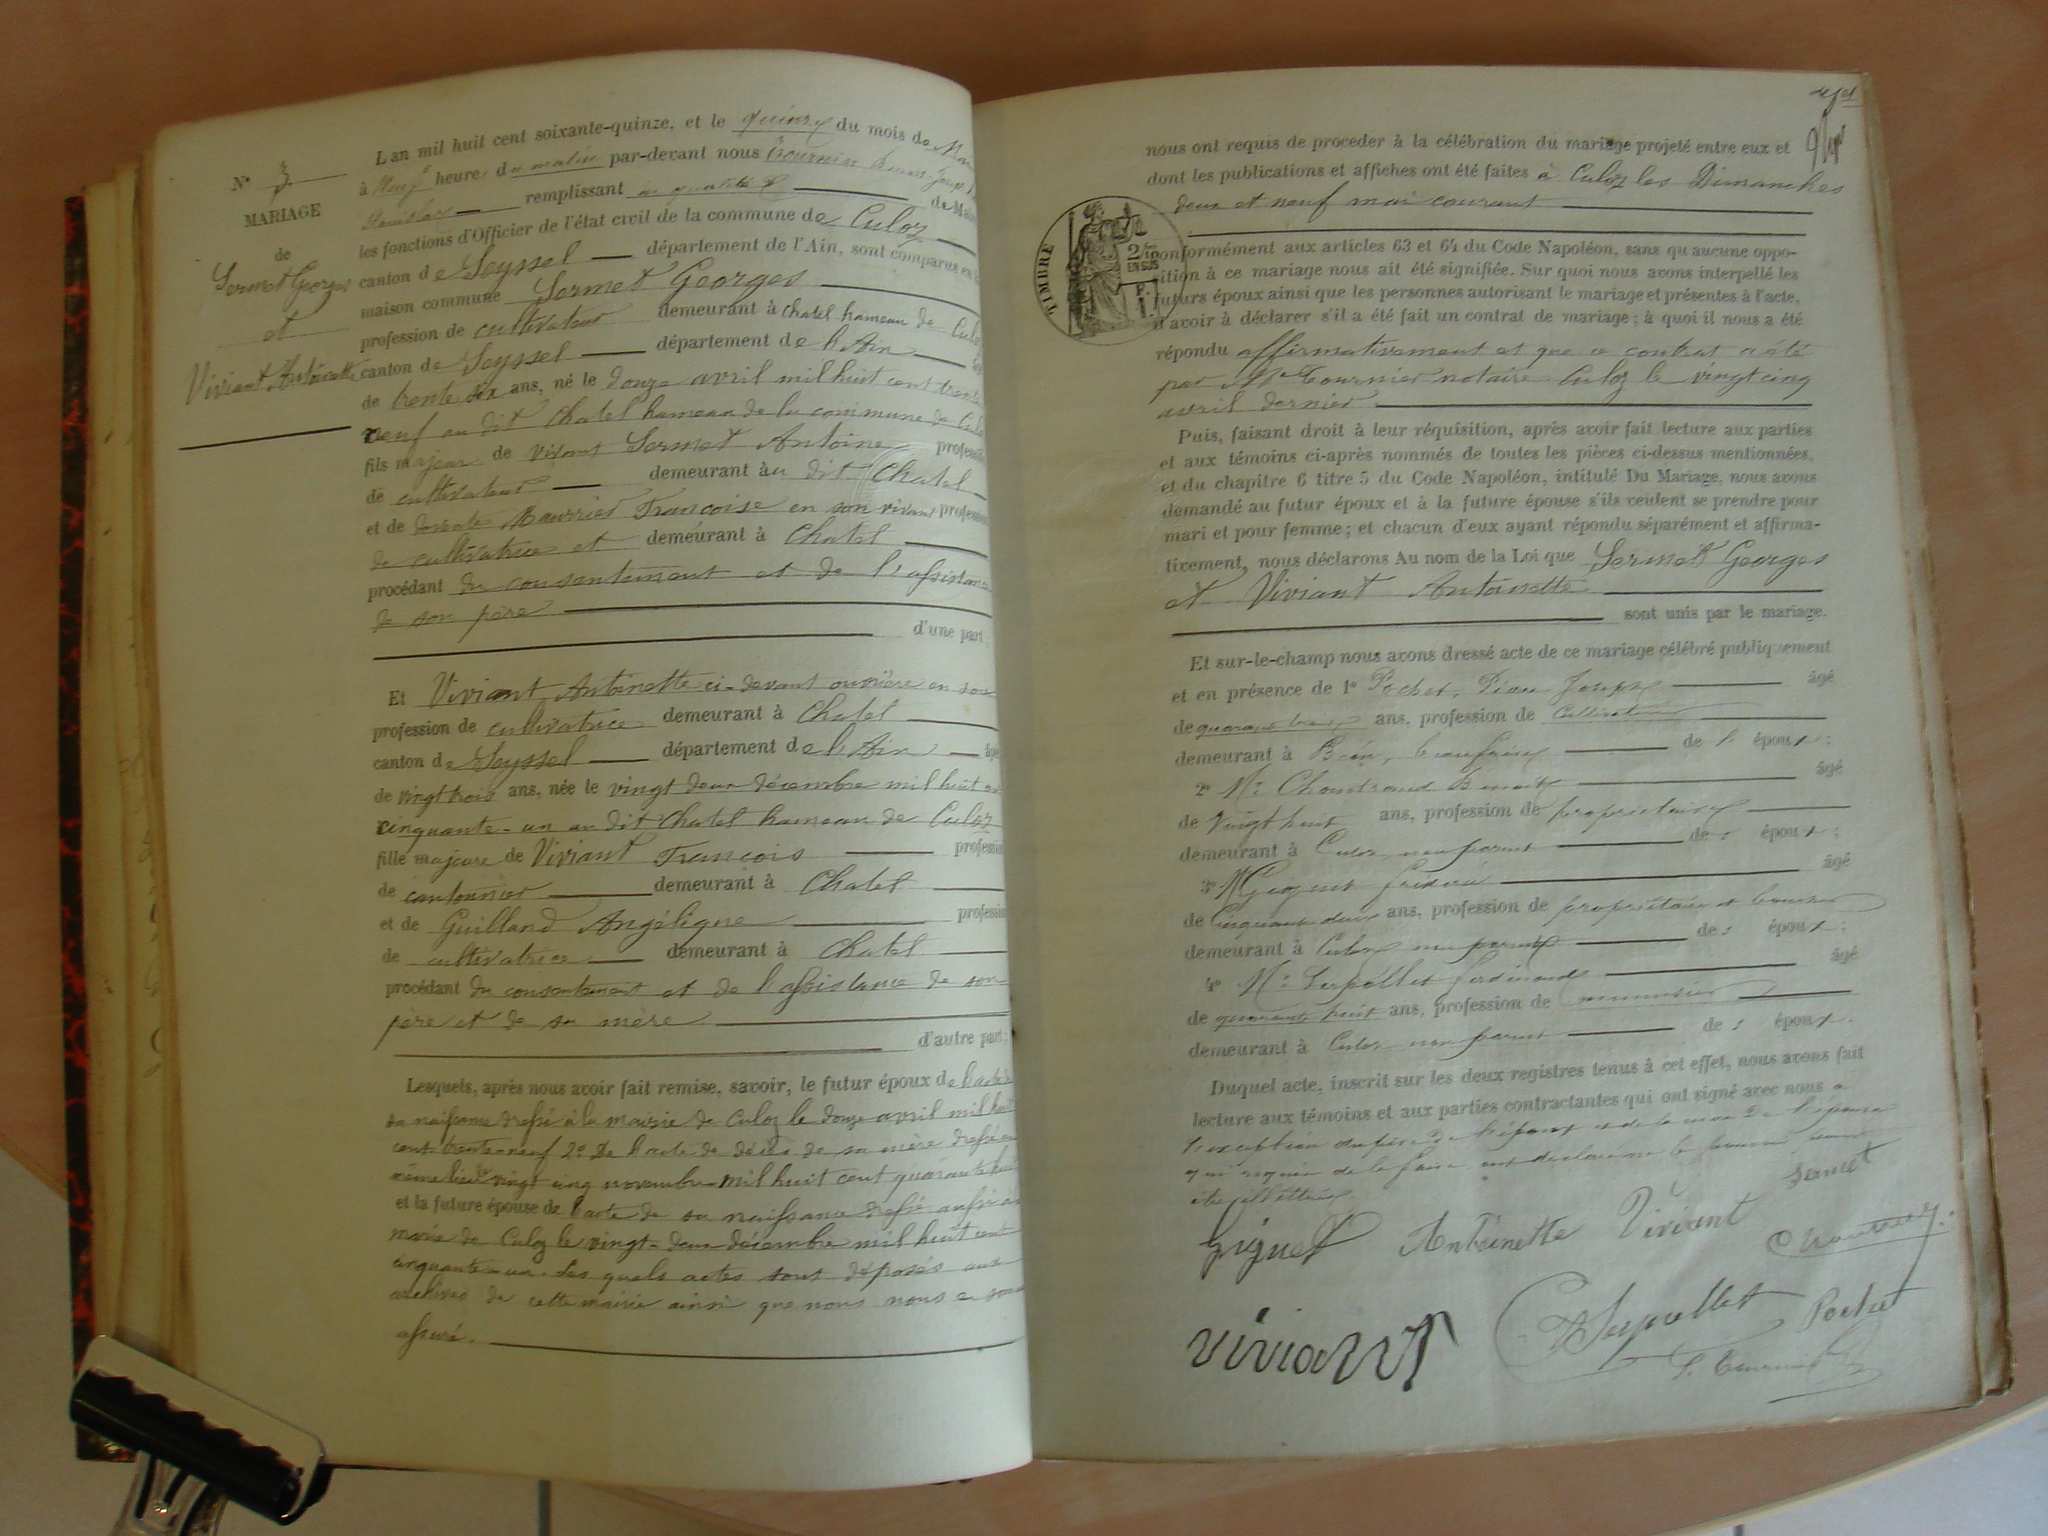 Nº 3
MARIAGE
de
Sermet Georges
et
Viviant Antoinette
L'an mil huit cent soixante-quinze, et le quinze du mois de Mai
à Neuf heures du matin par-devant nous Tournier
Stanislas remplissant en qualité de Maire
les fonctions d'Officier de l'état civil de la commune de Culoz
canton de Seyssel département de l'Ain, sont comparus en la
maison commune Sermet Georges
profession de cultivateur demeurant à Chatel hameau de Culoz
canton de Seyssel département de l'Ain âgé
de trente six ans, né le douze avril mil huit cent trente
neuf au dit Chatel hameau de la commune de Culoz
fils majeur de vivant Sermet Antoine profession
de cultivateur demeurant au dit Chatel
et de Françoise en son vivant profession
de cultivatrice et demeurant à Chatel
procédant du consentement et de l'assistance
de son père
d'une part
Et Viviant Antoinette ci-devant ouvrière en soie
profession de cultivatrice demeurant à Chatel
canton de Seyssel département de l'Ain âgée
de vingt trois ans, née le vingt deux décembre mil huit cent
cinquante-un au dit Chatel hameau de Culoz
fille majeure de Viviant François profession
de cantonnier demeurant à Chatel
et de Guilland Angélique profession
de cultivatrice demeurant à Chatel
procédant du consentement et de l'assistance de son
père et de sa mère
d'autre part:
Lesquels, après nous avoir fait remise, savoir, le futur époux de l'acte de
sa naissance dressé à la mairie de Culoz le douze avril mil huit
cent trente-neuf 2º De l'acte de décès de sa mère dressé au
même lieu le vingt cinq novembre mil huit cent quarante huit
et la future épouse de l'acte de sa naissance dressé aussi à la
mairie de Culoz le vingt-deux décembre mil huit cent
cinquante-un. Les quels actes sont déposés aux
archives de cette mairie ainsi que nous nous en sommes
assuré.
nous ont requis de proceder à la célébration du mariage projeté entre eux et
dont les publications et affiches ont été faites à Culoz les Dimanches
deux et neuf mai courant
TIMBRE
2/10
EN SUS
conformément aux articles 63 et 64 du Code Napoléon, sans qu'aucune oppo-
sition à ce mariage nous ait été signifiée. Sur quoi nous avons interpellé les
futurs époux ainsi que les personnes autorisant le mariage et présentes à l'acte,
d'avoir à déclarer s'il a été fait un contrat de mariage; à quoi il nous a été
répondu affirmativement et que ce contrat a été
par Me Tournier notaire Culoz le vingt cinq
avril dernier
Puis, faisant droit à leur réquisition, après avoir fait lecture aux parties
et aux témoins ci-après nommés de toutes les pièces ci-dessus mentionnées,
et du chapitre 6 titre 5 du Code Napoléon, intitulé Du Mariage, nous avons
demandé au futur époux et à la future épouse s'ils veulent se prendre pour
mari et pour femme; et chacun d'eux ayant répondu séparément et affirma-
tivement, nous déclarons Au nom de la Loi que Sermet Georges
et Viviant Antoinette
sont unis par le mariage.
Et sur-le-champ nous avons dressé acte de ce mariage célébré publiquement
et en présence de 1º Pochet, Joseph âgé
de ans, profession de cultivateur
demeurant à Béon, beau frère de l'époux;
2º Mr Benoit âgé
de Vingt huit ans, profession de propriétaire
demeurant à Culoz non parent des époux;
3º Mr Giguet âgé
de Cinquante deux ans, profession de propriétaire et
demeurant à Culoz non parent des époux;
4º Mr Serpollet Ferdinand âgé
de quarante huit ans, profession de menuisier
demeurant à Culoz non parent des époux.
Duquel acte, inscrit sur les deux registres tenus à cet effet, nous avons fait
lecture aux témoins et aux parties contractantes qui ont signé avec nous à
l'exception du père de l'époux et de la mère de l'épouse
qui requis de le faire ont déclaré ne le pouvoir
être illettrés
Sermet
Giguet Antoinette Viviant
Serpollet Pochet
viviant
S. Tournier